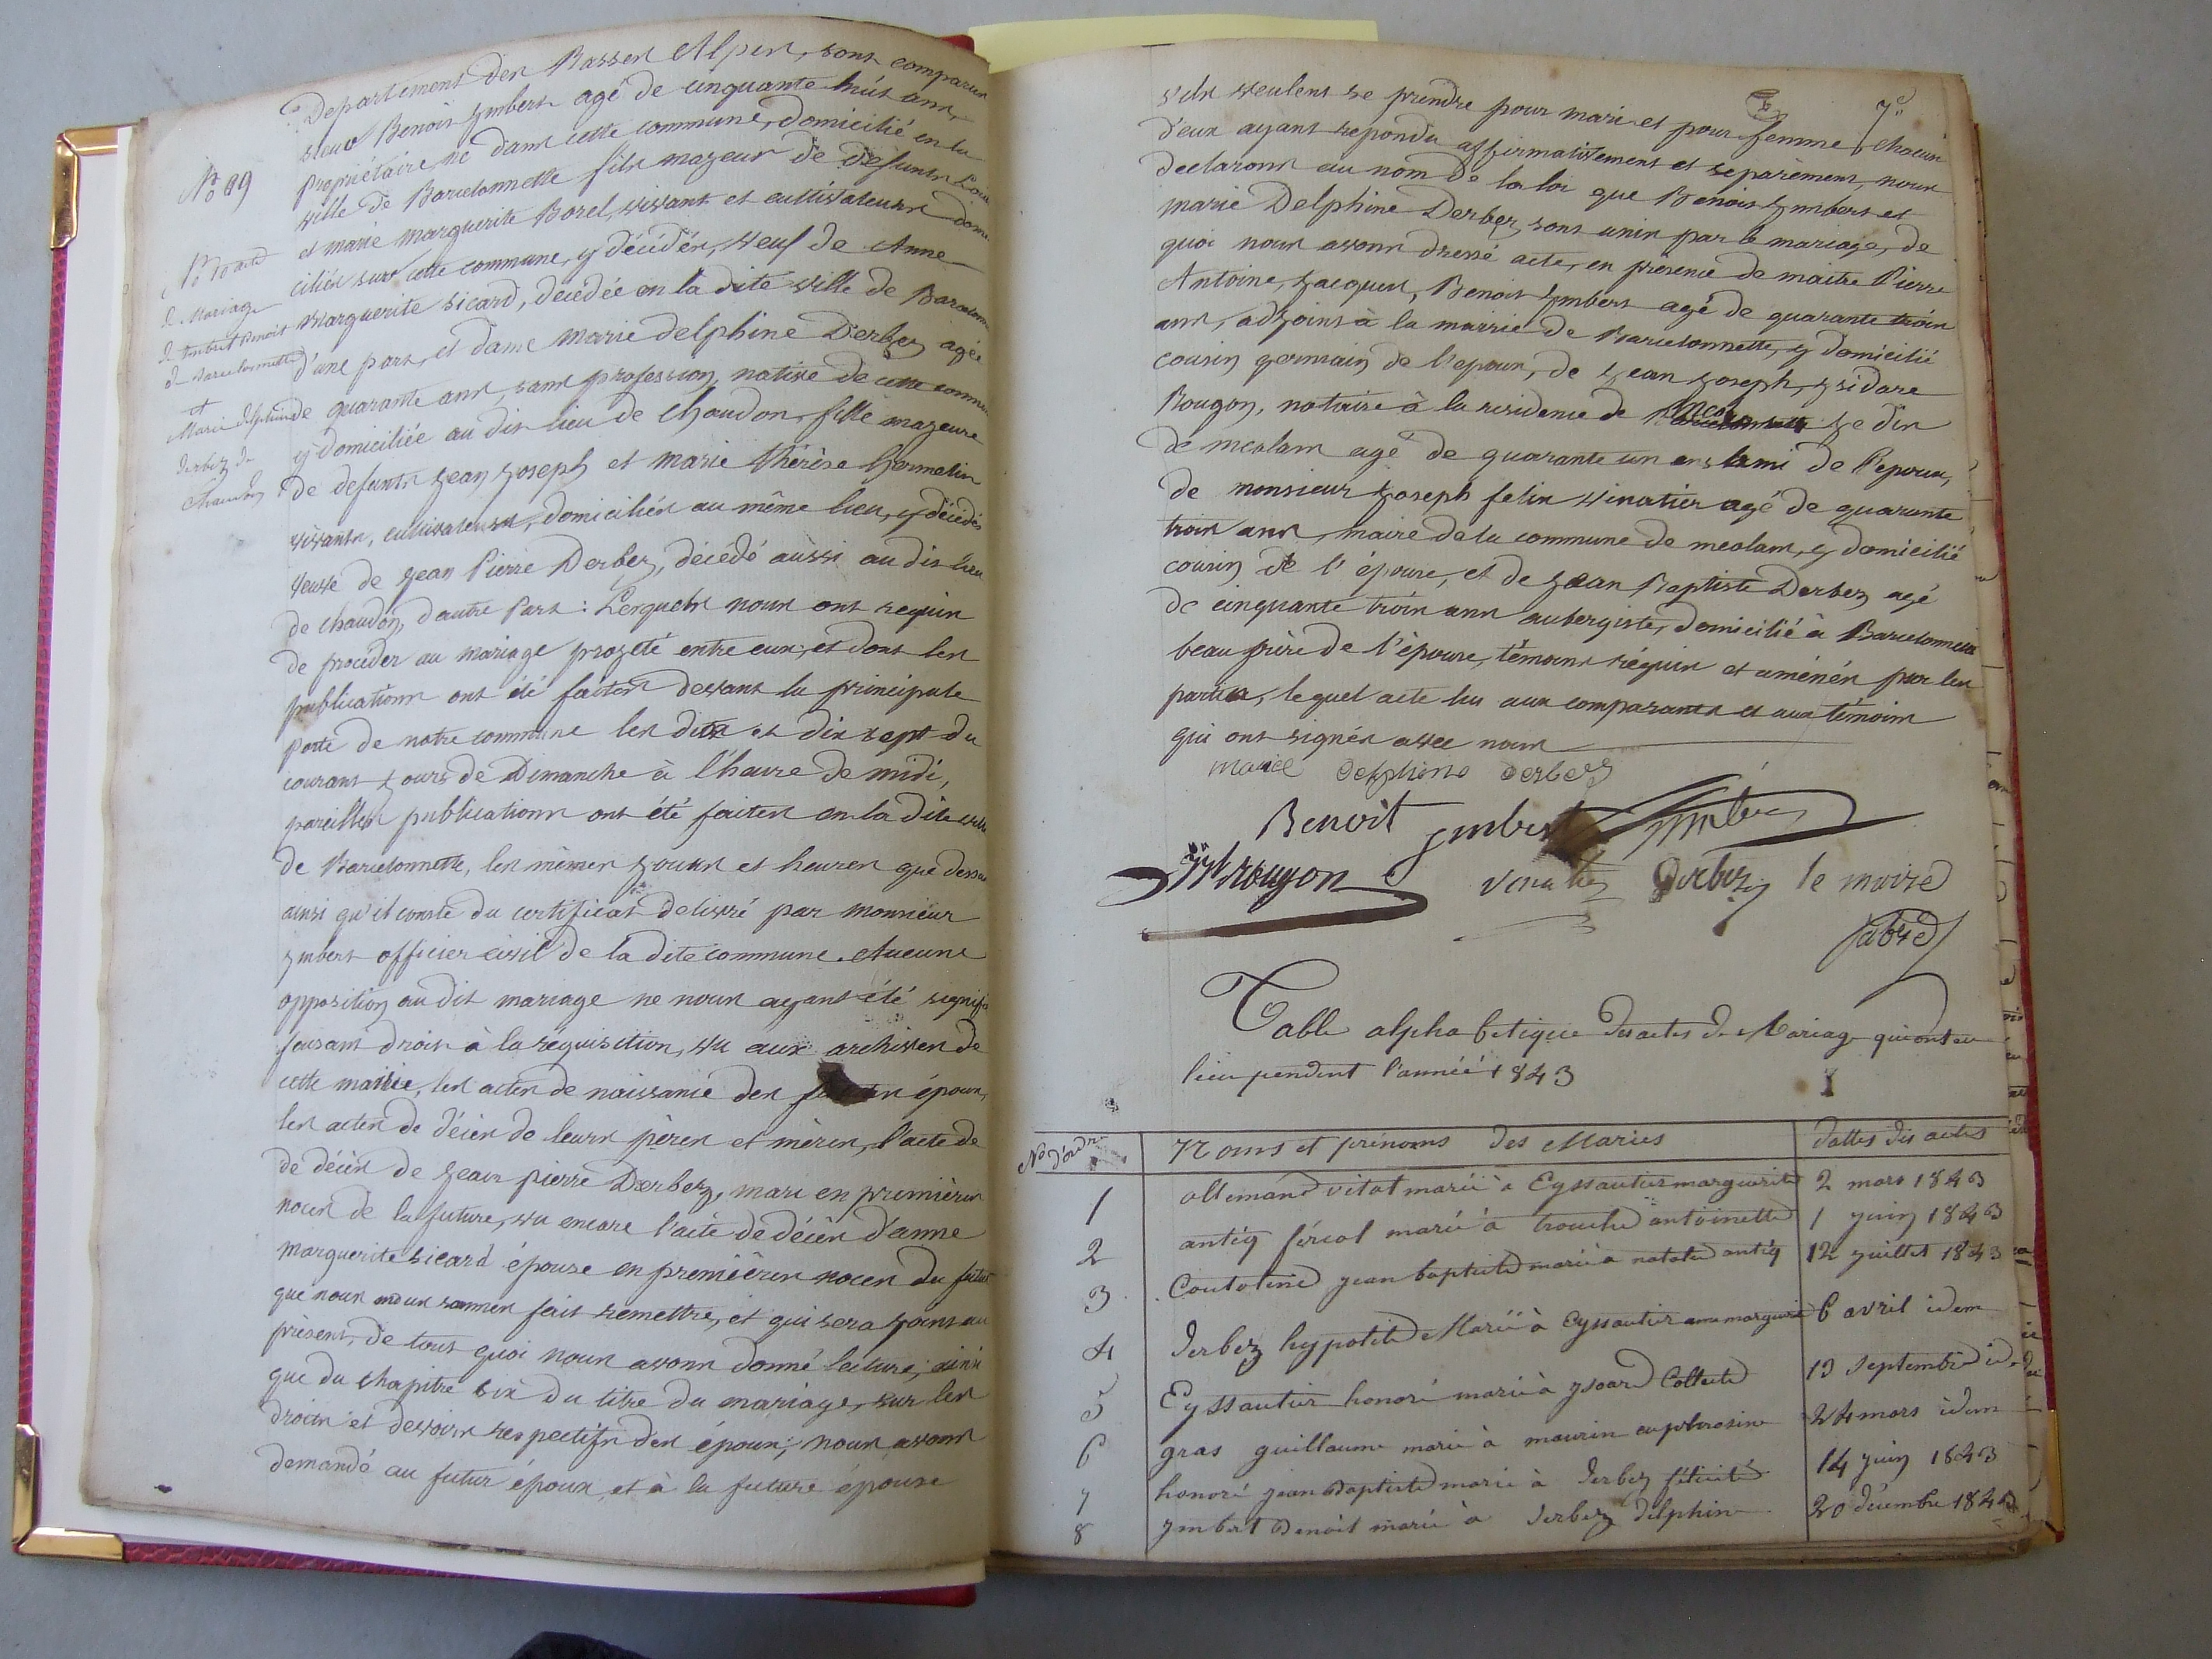 Departement des Basses Alpes, sont comparus
sieur Benoit Ymbert agé de cinquante huit ans,
propriétaire né dans cette commune, domicilié en la
ville de Barcelonnette fils majeur de defunts
et marie marguerite Borel, vivant et cultivateurs domi
ciliés sur cette commune, y décédés, veuf de Anne
Marguerite Sicard, décédée en la dite ville de
d'une part, et dame marie delphine Derbez agée
de quarante ans, sans profession, native de cette
y domiciliée au dit lieu de Chaudon, fille majeure
de defunts jean joseph et marie thérèse
vivants, cultivateurs, domiciliés au même lieu, y décédés
veuve de jean Pierre Derbez, décédé aussi au dit lieu
de chaudon, d'autre Part : Lesquels nous ont requis
de proceder au mariage projeté entre eux, et dont les
publications ont été faites devant la principale
porte de notre commune les dix et dix sept du
courant jours de Dimanche à l'heure de midi,
pareilles publications ont été faites en la dite ville
de Barcelonnette, les mèmes jours et heures que dessus
ainsi qu'il conste du certificat delivré par monsieur
ymbert officier civil de la dite commune. Aucune
opposition au dit mariage ne nous ayant été signifié
faisant droit à la réquisition, vu aux archives de
cette mairie, les actes de naissance des futurs époux,
les actes de décès de leurs pères et mères, l'acte de
de décès de jean pierre Derbez, mari en premières
noces de la future, vu encore l'acte de décès d'anne
marguerite sicard épouse en premières noces du futur
que nous nous sommes fait remettre, et qui sera joint au
présent, de tout quoi nous avons donné lecture, ainsi
que du chapitre six du titre du mariage, sur les
droits et devoirs respectifs des époux, nous avons
demandé au futur époux et à la future épouse
No 89
de Mariage
de Imbert Benoit
de Barcelonnette
et
Marie delphine
derbez de
Chaudon
7e
s'ils veulent se prendre pour mari et pour femme chacun
d'eux ayant repondu affirmativement et separèment, nous
declarons au nom de la loi que Benoit Ymbert et
marie Delphine Derbez, sont unis par le mariage, de
quoi nous avons dressé acte, en présence de maitre Pierre
Antoine, jacques, Benoit Ymbert agé de quarante trois
ans, adjoint à la mairie de Barcelonnette, y domicilié
cousin germain de l'epoux, de jean joseph, ysidore
Rougon, notaire à la residence de se dis
de meolans agé de quarante un ans ami de l'epoux,
de monsieur joseph felix vinatier agé de quarante
trois ans, maire de la commune de meolans, y domicilié
cousin de l'épouse, et de jean Baptiste Derbez agé
de cinquante trois ans aubergiste, domicilié à Barcelonnette
beau frère de l'épouse, témoins réquis et aménés par les
parties, lequel acte lu aux comparants et aux témoins
qui ont signés avec nous
marie delphine derbez
Benoit ymbert ymbert
rougon vinatier Derbez le maire
fabre
Table alphabetique des actes de Mariage qui ont eu
lieu pendent l'année 1843
No d'ordre Noms et prénoms des Mariés dattes des actes
1 allemand vital marié à Eyssautier marguerite 2 mars 1843
2 antiq féréol marié à trouche antoinette 1 juin 1843
3 Coutolene jean baptiste marié a natalie antiq 12 juillet 1843
4 derbez hypolite Marié à Eyssautier anne marguerite 6 avril idem
5 Eyssautier honoré marié à ysoard Collecte 13 septembre
6 gras guillaume marié à maurin euphrosine 24 mars idem
7 honoré jean Baptiste marié à derbez félicité 14 juin 1843
8 ymbert Benoit marié à derbez delphine 20 décembre 1843